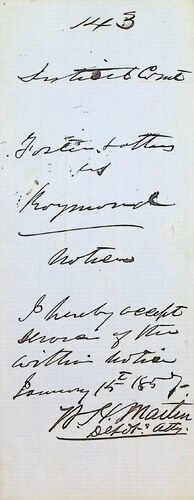 143
District Court
Foster & others
vs
Raymond
Notice
I hereby accept
service of the
within notice
January 15th 1857.
W. H. Martin
Defdts Atty.